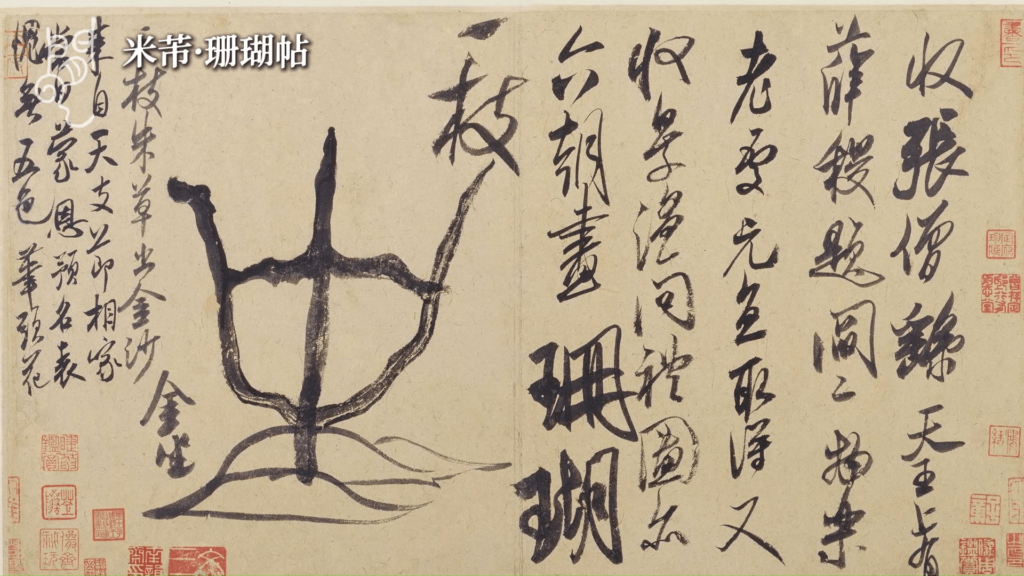 米芾·珊瑚帖
收張僧繇天王上有
薛稷題閻二物樂
老處元直取得又
收景溫問禮圖亦
六朝畫珊瑚
一枝
金坐
三枝朱草出金沙
來自天支節相家
當日蒙恩預名表
愧無五色筆頭花